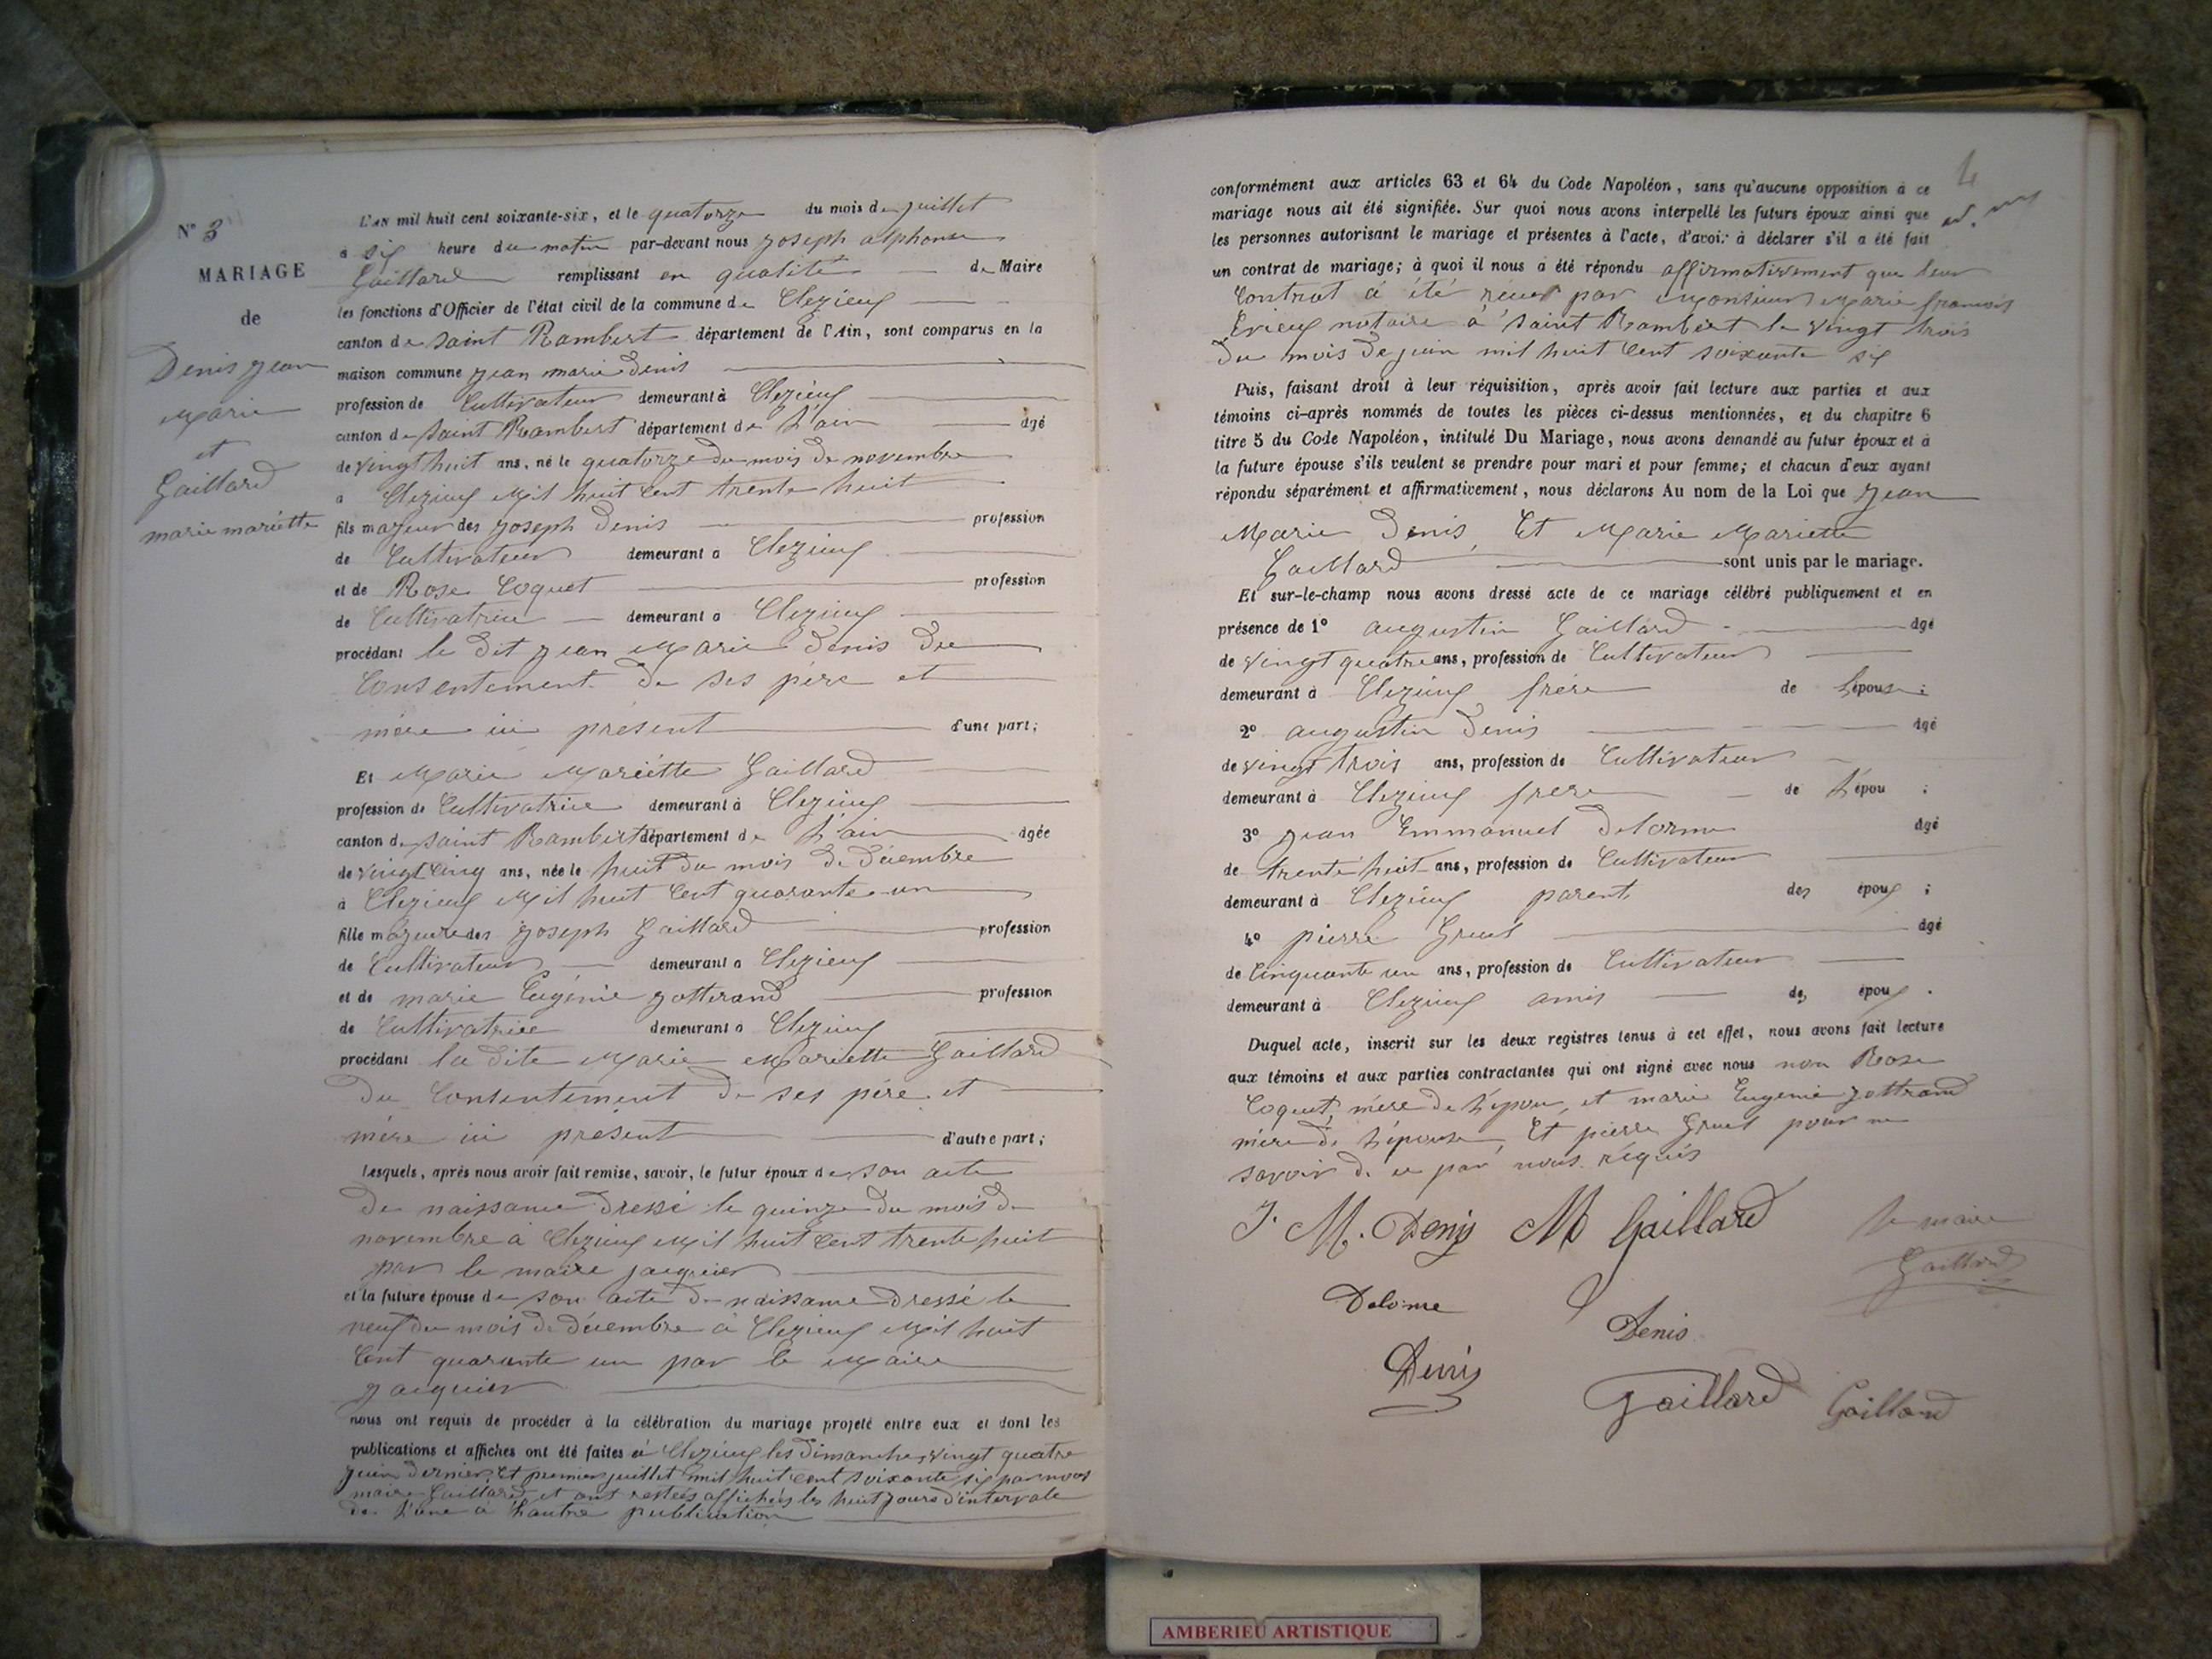 N° 3
MARIAGE
de
Denis Jean
Marie
et
Gaillard
marie mariette
L'AN mil huit cent soixante-six, et le quatorze du mois de juillet
a six heure du matin par-devant nous Joseph alphonse
Gaillard remplissant en qualité de Maire
les fonctions d'Officier de l'état civil de la commune de Cleyzieux
canton de saint Rambert département de l'Ain, sont comparus en la
maison commune Jean marie denis
profession de Cultivateur demeurant à Cleyzieux
canton de saint Rambert département de L'ain âgé
de vingt huit ans, né le quatorze du mois de novembre
a Cleyzieux Mil huit Cent trente huit
fils majeur des Joseph Denis profession
de Cultivateur demeurant a Cleyzieux
et de Rose Coquet profession
de Cultivatrice demeurant a Cleyzieux
procédant le dit Jean Marie Denis du
Consentement de ses père et
mère ici présent d'une part;
Et Marie Mariette Gaillard
profession de Cultivatrice demeurant à Cleyzieux
canton de saint Rambert département de L'ain âgée
de vingt Cinq ans, née le huit du mois de décembre
à Cleyzieux Mil huit Cent quarante un
fille majeure des Joseph Gaillard profession
de Cultivateur demeurant a Cleyzieux
et de marie Eugénie jotterand profession
de Cultivatrice demeurant a Cleyzieux
procédant la dite Marie Mariette Gaillard
du Consentement de ses père et
mère ici présent d'autre part;
Lesquels, après nous avoir fait remise, savoir, le futur époux de son acte
de naissance Dressé le quinze du mois de
novembre à Cleyzieux Mil huit Cent trente huit
par le maire jacquier
et la future épouse de son acte de naissance Dressé le
neuf du mois de décembre à Cleyzieux Mil huit
Cent quarante un par le Maire
jacquier
nous ont requis de procéder à la célébration du mariage projeté entre eux et dont les
publications et affiches ont été faites à Cleyzieux les dimanches vingt quatre
juin dernier, Et premier juillet mil huit Cent soixante six par nous
maire Gaillard et ont restées affichées les huit jours d'intervale
de l'une à l'autre publication
4
conformément aux articles 63 et 64 du Code Napoléon, sans qu'aucune opposition à ce
mariage nous ait été signifiée. Sur quoi nous avons interpellé les futurs époux ainsi que
les personnes autorisant le mariage et présentes à l'acte, d'avoir à déclarer s'il a été fait
un contrat de mariage; à quoi il nous a été répondu affirmativement que leur
Contrat à été réçue par Monsieur Marie françois
Erieux notaire à saint Rambert le vingt trois
Du mois de juin mil huit Cent soixante six
Puis, faisant droit à leur réquisition, après avoir fait lecture aux parties et aux
témoins ci-après nommés de toutes les pièces ci-dessus mentionnées, et du chapitre 6
titre 5 du Code Napoléon, intitulé Du Mariage, nous avons demandé au futur époux et à
la future épouse s'ils veulent se prendre pour mari et pour femme; et chacun d'eux ayant
répondu séparément et affirmativement, nous déclarons Au nom de la Loi que Jean
Marie Denis, Et Marie Mariette
Gaillard sont unis par le mariage.
Et sur-le-champ nous avons dressé acte de ce mariage célébré publiquement et en
présence de 1° augustin Gaillard âgé
de vingt quatre ans, profession de Cultivateur
demeurant à Cleyzieux frère de L'épouse;
2° augustin Denis âgé
de vingt trois ans, profession de Cultivateur
demeurant à Cleyzieux frere de L'épou ;
3° Jean Emmanuel Delorme âgé
de trente huit ans, profession de Cultivateur
demeurant à Cleyzieux parent des époux ;
4° pierre Gruel âgé
de Cinquante un ans, profession de Cultivateur
demeurant à Cleyzieux amis des époux .
Duquel acte, inscrit sur les deux registres tenus à cet effet, nous avons fait lecture
aux témoins et aux parties contractantes qui ont signé avec nous non Rose
Coquet, mère de L'épou, et marie Eugenie jottrand
mère de L'épouse, Et pierre Gruel pour ne
savoir de ce par nous réquis
J. M. Denis M Gaillard le maire
Gaillard
Delorme
Denis
Denis
Gaillard Gaillard
AMBERIEU ARTISTIQUE